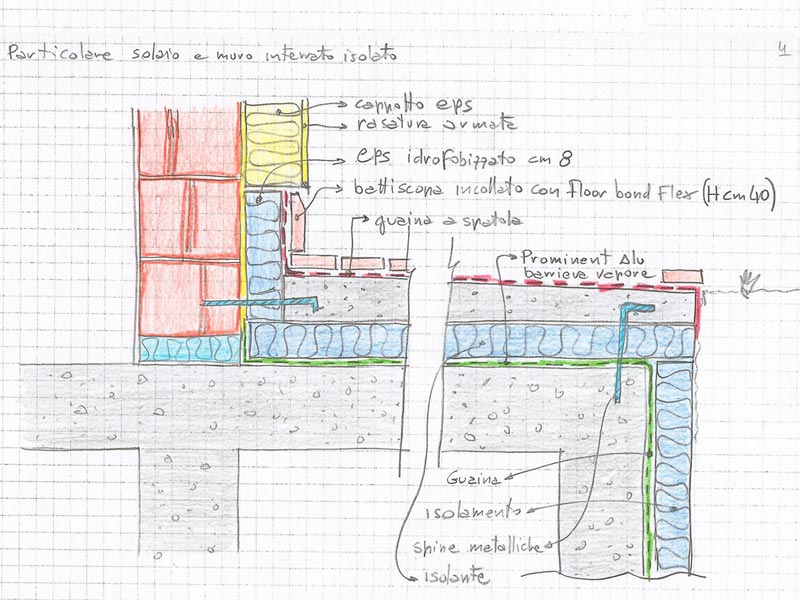 Particolare solaio e muro interrato isolato
4
cappotto eps
rasatura armata
eps idrofobizzato cm 8
battiscopa incollato con floor bond Flex (H cm 40)
guaina a spatola
Prominent Alu
barriera vapore
Guaina
isolamento
spine metalliche
isolante